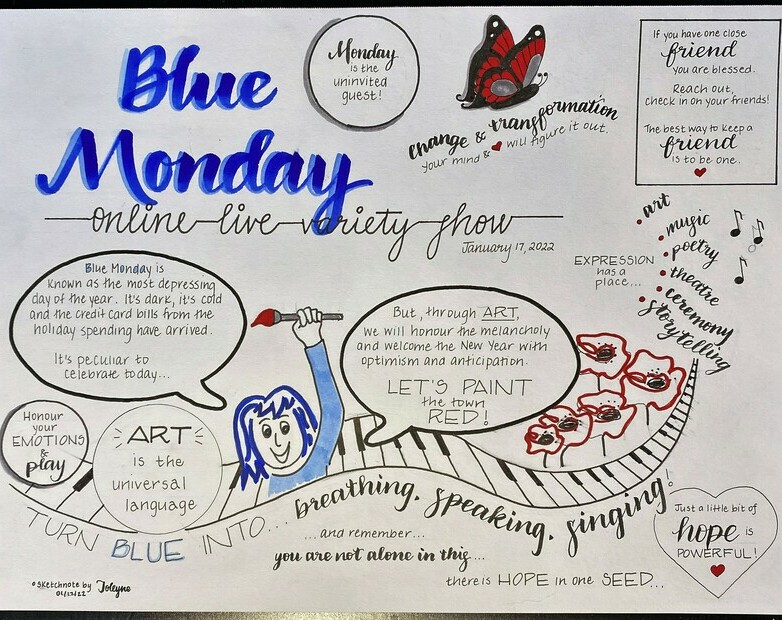 Blue
Monday
online live variety show
January 17, 2022
Monday
is the
uninvited
guest!
change & transformation
your mind & ❤ will figure it out.
If you have one close
friend
you are blessed.
Reach out,
check in on your friends!
The best way to keep a
friend
is to be one.
EXPRESSION
has a
place...
art
music
poetry
theatre
ceremony
storytelling
Blue Monday is
known as the most depressing
day of the year. It's dark, it's cold
and the credit card bills from the
holiday spending have arrived.
It's peculiar to
celebrate today...
But, through ART,
we will honour the melancholy
and welcome the New Year with
optimism and anticipation.
LET'S PAINT
the town
RED!
Honour
your
EMOTIONS
&
play
ART
is the
universal
language
TURN BLUE INTO...
breathing, speaking, singing!
...and remember...
you are not alone in this...
there is HOPE in one SEED...
Just a little bit of
hope is
POWERFUL!
sketchnote by Joleyne